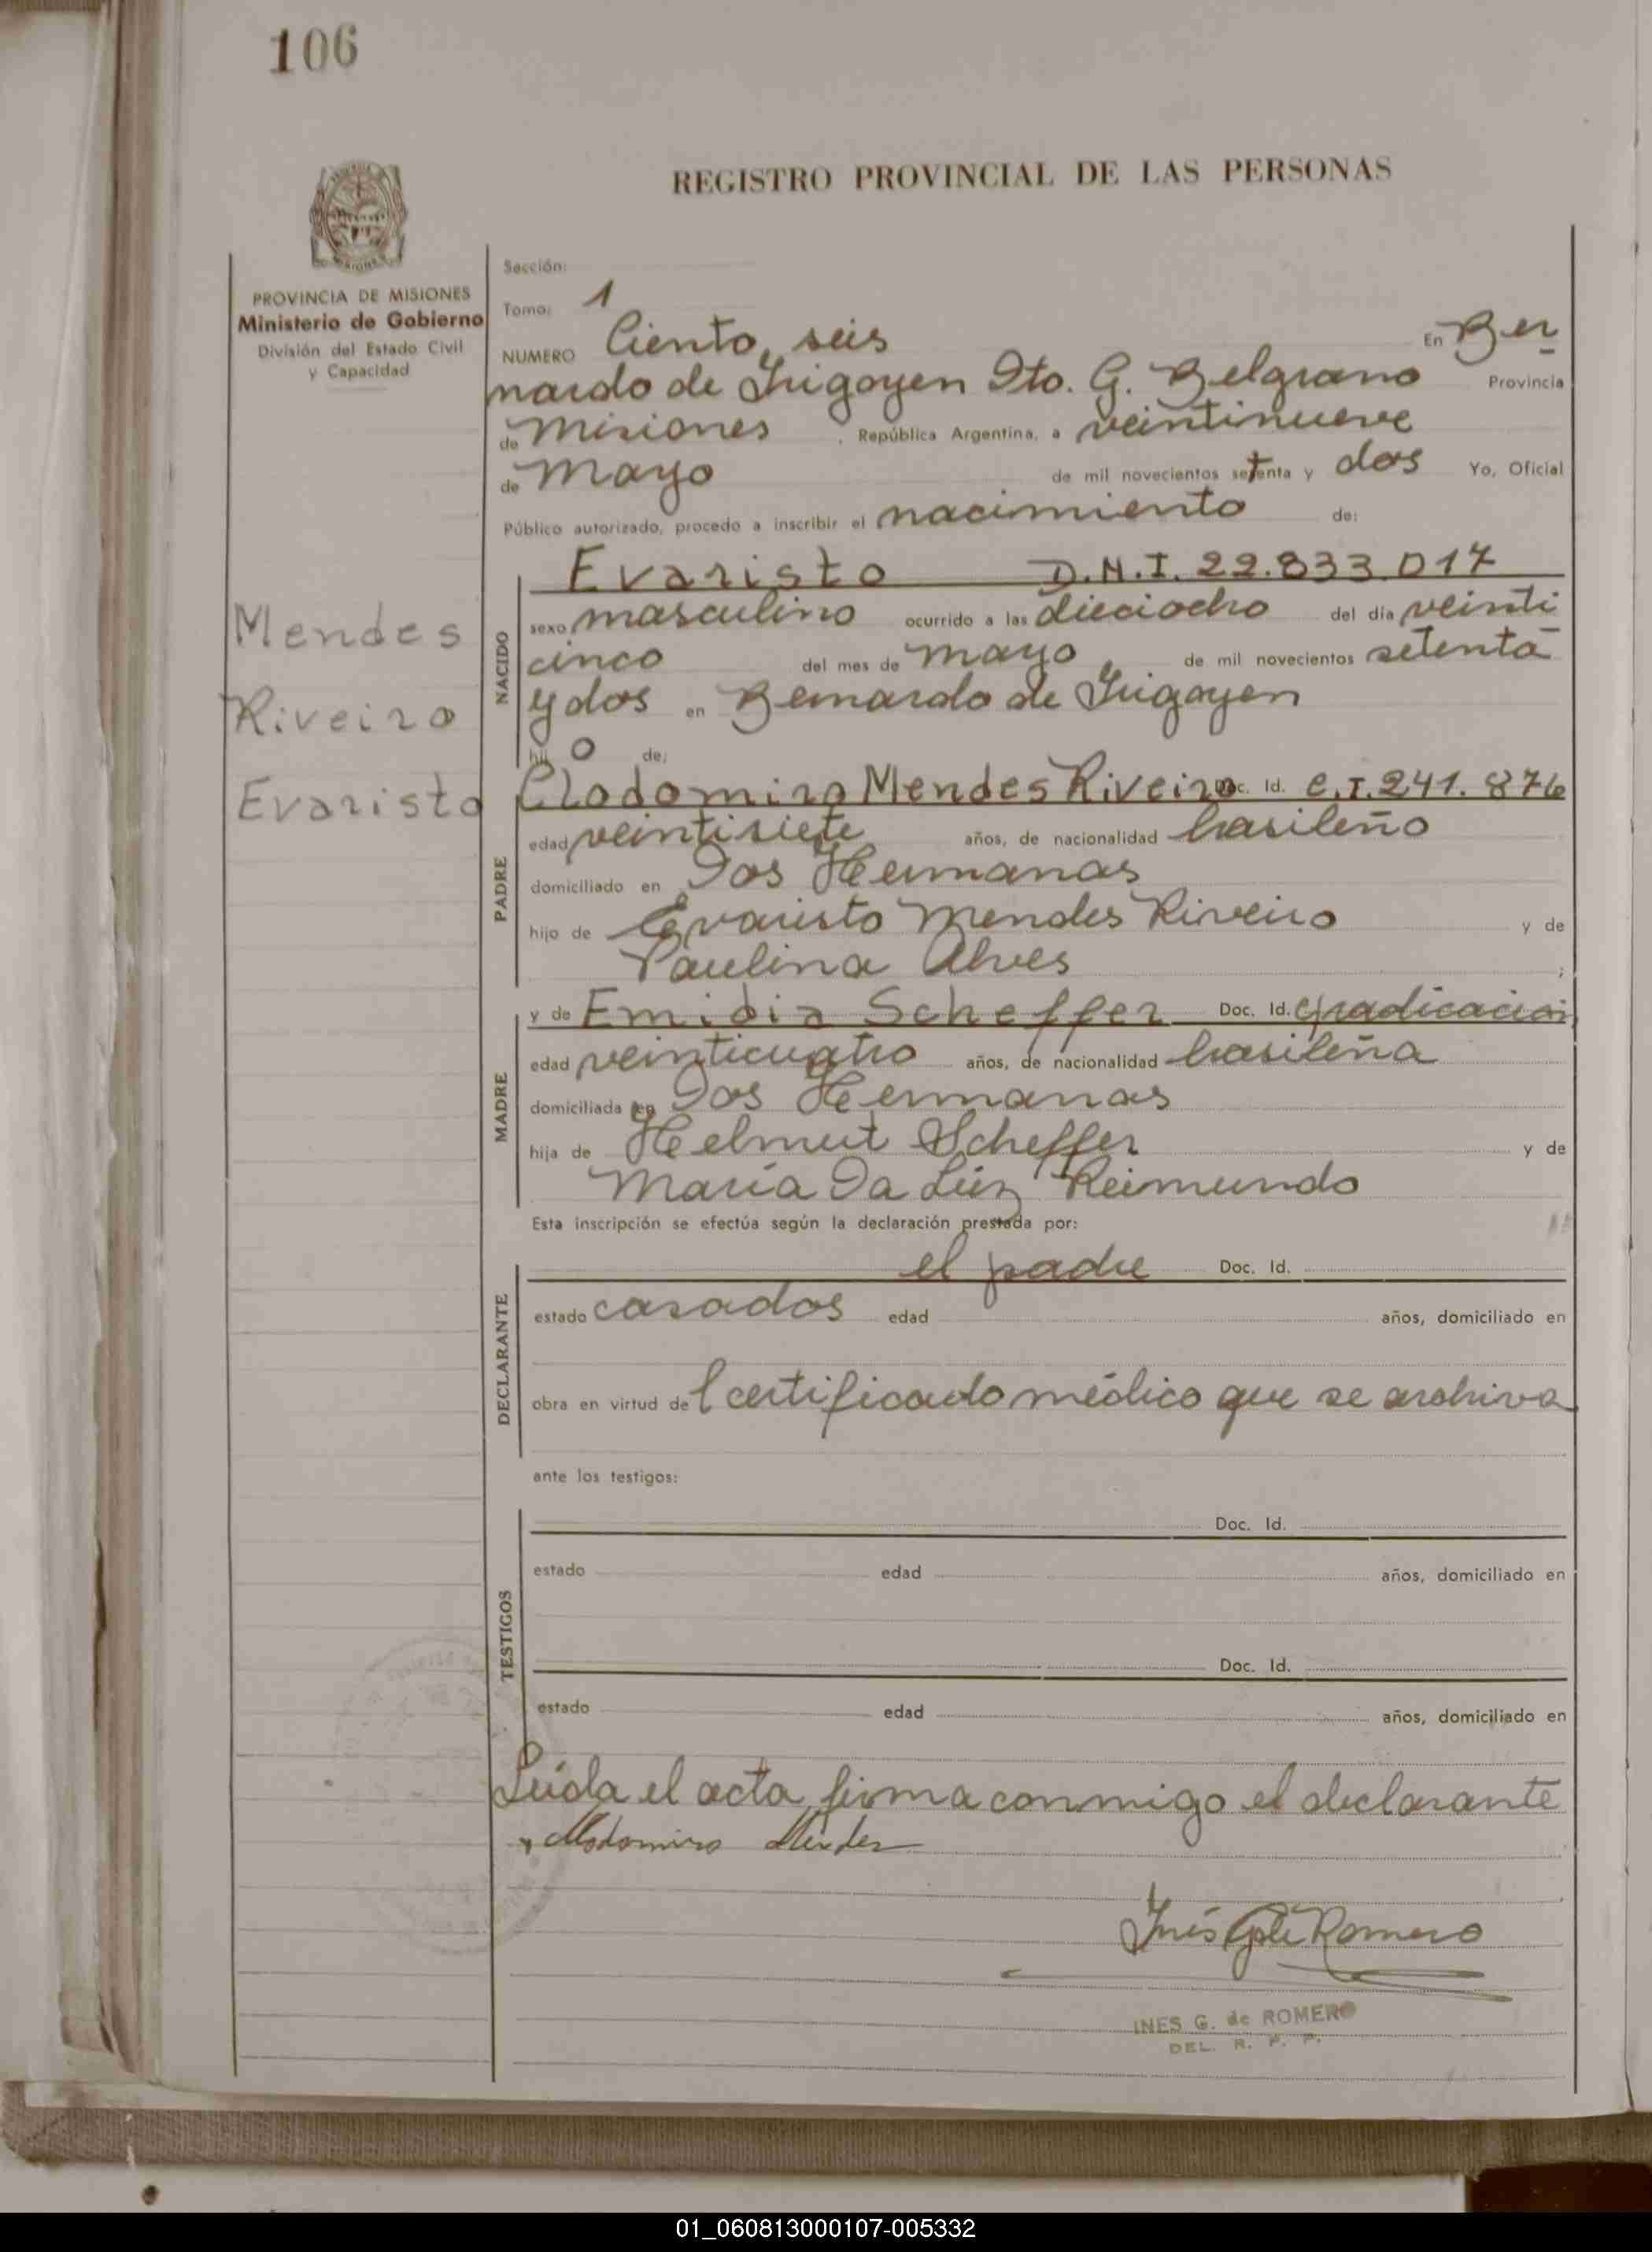 106
REGISTRO PROVINCIAL DE LAS PERSONAS
PROVINCIA DE MISIONES
Ministerio de Gobierno
División del Estado Civil
y Capacidad
Sección:
Tomo: 1
NUMERO Ciento seis En Ber
nardo de Irigoyen Dto. G. Belgrano Provincia
de Misiones , República Argentina, a veintinueve
de Mayo de mil novecientos setenta y dos Yo, Oficial
Público autorizado, procedo a inscribir el nacimiento de:
Mendes
Riveiro
Evaristo
NACIDO
Evaristo D.N.I. 22.833.017
sexo masculino ocurrido a las dieciocho del día veinti
cinco del mes de mayo de mil novecientos setenta
y dos en Bernardo de Irigoyen
hij o de:
PADRE
Clodomiro Mendes Riveiro Doc. Id. C.I. 241.876
edad veintisiete años, de nacionalidad brasileño
domiciliado en Dos Hermanas
hijo de Evaristo Mendes Riveiro y de
Paulina Alves ;
MADRE
y de Emidia Scheffer Doc. Id. C/radicación
edad veinticuatro años, de nacionalidad brasileña
domiciliada en Dos Hermanas
hija de Helmut Scheffer y de
María Da Luz Reimundo
Esta inscripción se efectúa según la declaración prestada por:
DECLARANTE
el padre Doc. Id.
estado casados edad años, domiciliado en
obra en virtud de l certificado médico que se archiva
ante los testigos:
TESTIGOS
Doc. Id.
estado edad años, domiciliado en
Doc. Id.
estado edad años, domiciliado en
Leída el acta firma conmigo el declarante
Clodomiro Mendes
Inés G. de Romero
INES G. de ROMERO
DEL. R. P. P.
01_060813000107-005332